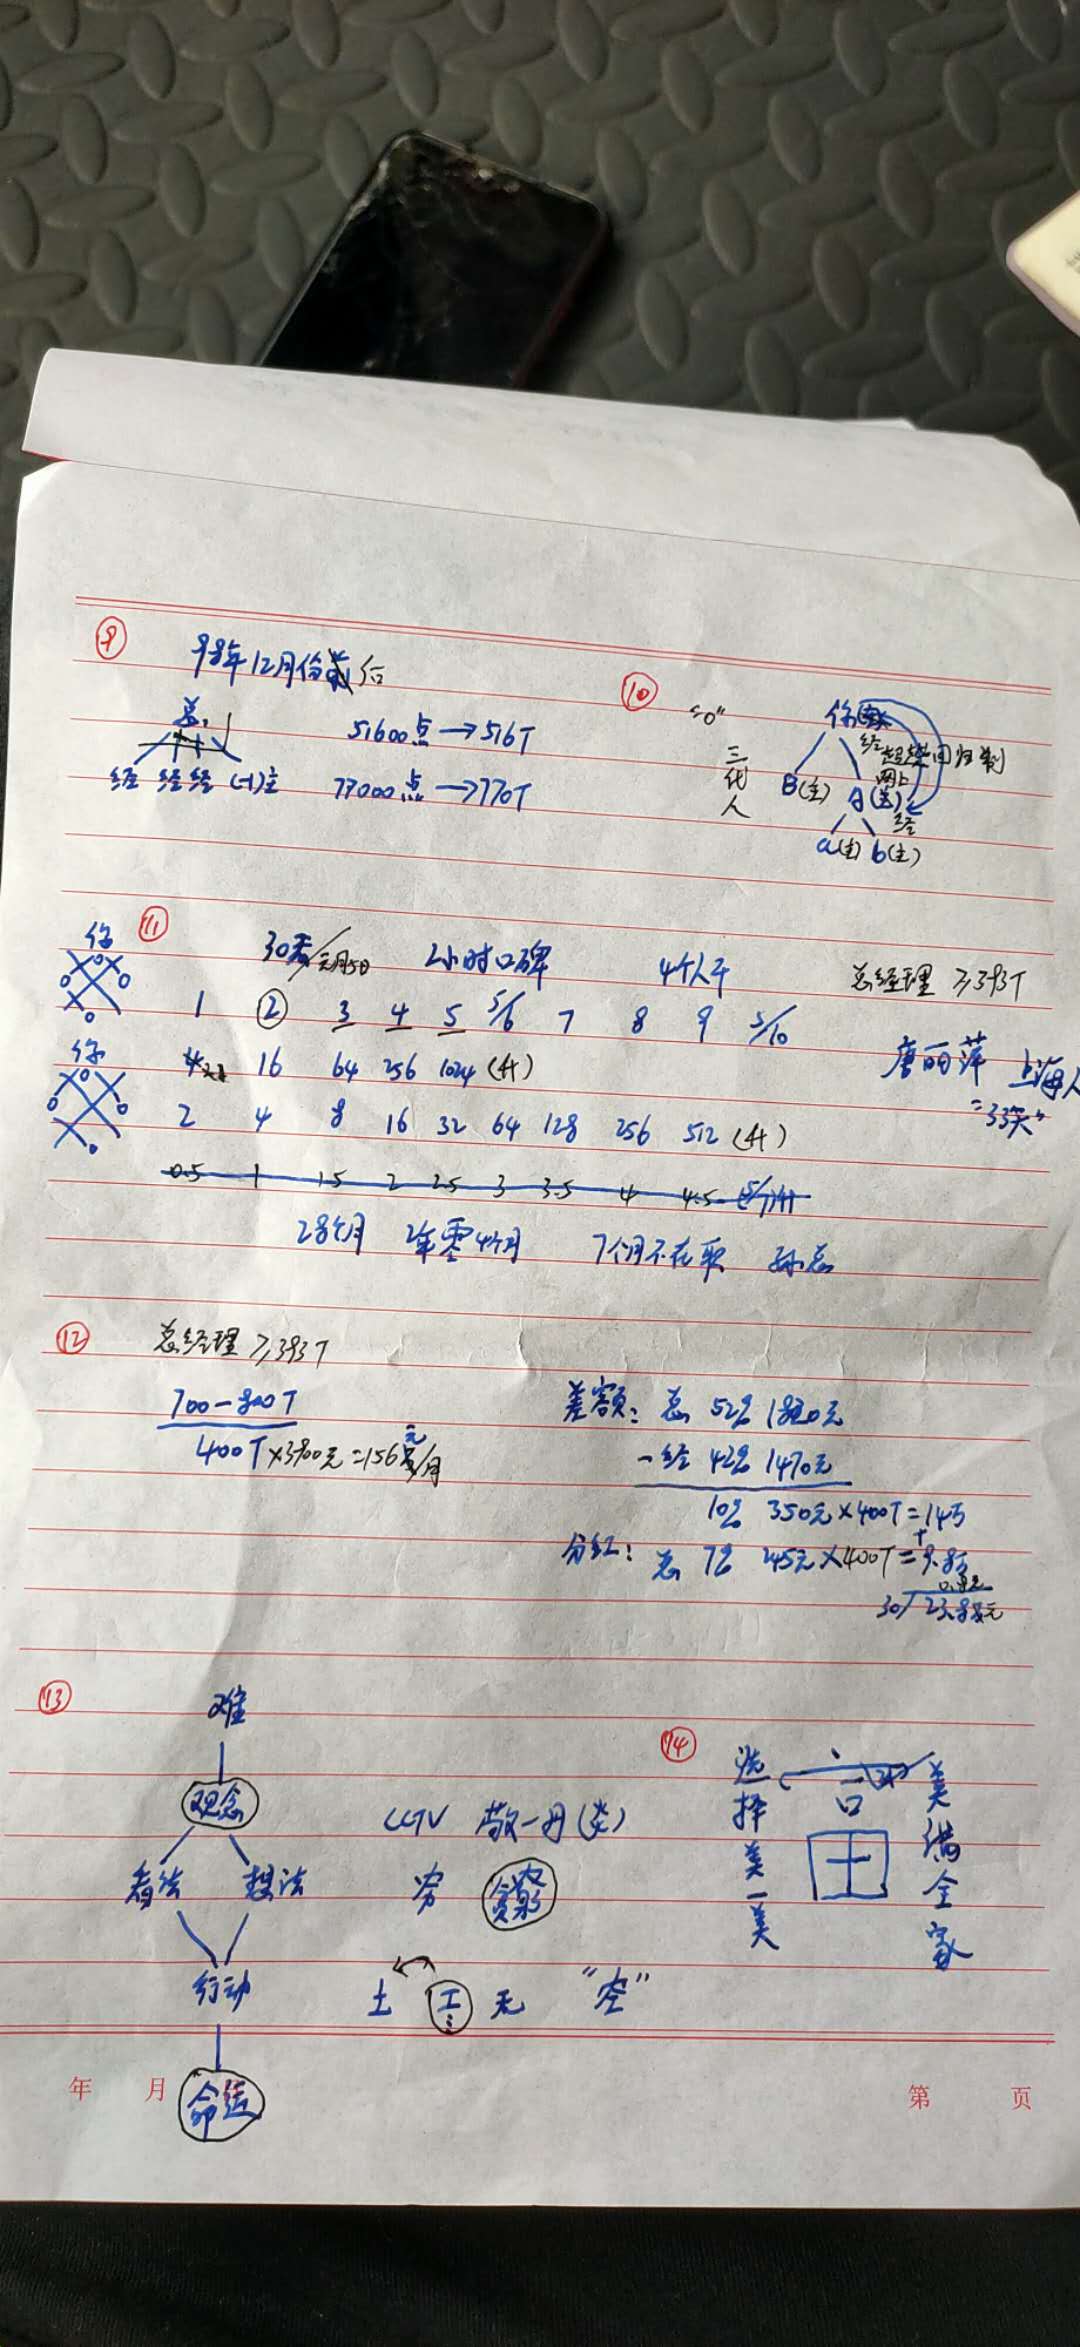 ⑨ 98年12月份 后
总
51600点→516T
经 经 经 (-1)主 77000点→770T
⑩ "0" 你
三代人
经 超越回归制
网上
B(主) A(总)
经
a(主) b(主)
⑪ 你
30 2小时口碑 4个人干 总经理 ≥393T
1 ② 3 4 5 5/6 7 8 9 5/10
唐丽萍 上海人
"33天"
你
4 16 64 256 1024 (个)
2 4 8 16 32 64 128 256 512 (个)
0.5 1 1.5 2 2.5 3 3.5 4 4.5
28个月 2年零4个月 7个月不在职 孙总
⑫ 总经理 ≥393T
700-800T
400T×3900元=156 元/月
差额: 总 52% 1820元
-经 42% 1470元
10% 350元×400T=14万
+
分红: 总 7% 245元×400T=9.8万
30 23.8
⑬ 难
观念
看法 想法
行动
命运
CCTV 敬一丹
穷
土 工 无 "空"
⑭ 选择美一美
一口
田
美满全家
年 月 第 页